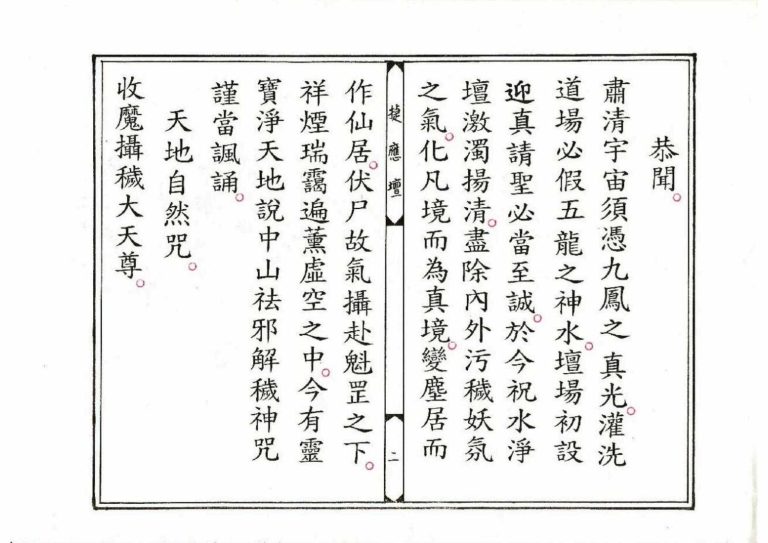 恭聞。
肅清宇宙須憑九鳳之真光。灌洗
道場必假五龍之神水。壇場初設
迎真請聖必當至誠。於今祝水淨
壇激濁揚清。盡除內外污穢妖氛
之氣。化凡境而為真境。變塵居而
捷應壇
二
作仙居。伏尸故氣攝赴魁罡之下。
祥煙瑞靄遍薰虛空之中。今有靈
寶淨天地說中山祛邪解穢神咒
謹當諷誦。
天地自然咒。
收魔攝穢大天尊。